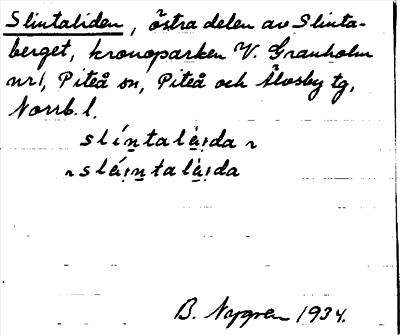 Slintaliden, östra delen av Slinta-
berget, kronoparken V. Granholm
nr 1, Piteå sn, Piteå och Älvsby tg,
Norrb. l.
slíntalà̤ida ~
~ slá̤intalà̤ida
B. Nygren 1934.